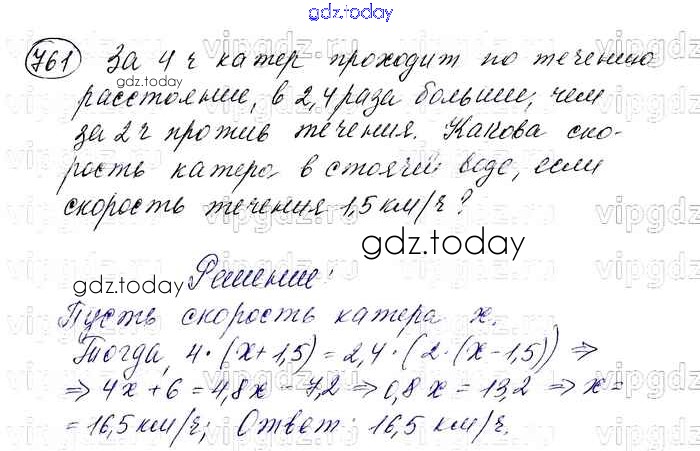 gdz.today
761 За 4 ч катер проходит по течению
расстояние, в 2,4 раза больше, чем
за 2 ч против течения. Какова ско-
рость катера в стоячей воде, если
скорость течения 1,5 км/ч?
gdz.today
gdz.today
Решение:
Пусть скорость катера x.
Тогда, 4·(x+1,5)=2,4·(2·(x-1,5)) ⇒
⇒ 4x+6=4,8x-7,2 ⇒ 0,8x=13,2 ⇒ x=
=16,5 км/ч; Ответ: 16,5 км/ч.
gdz.today